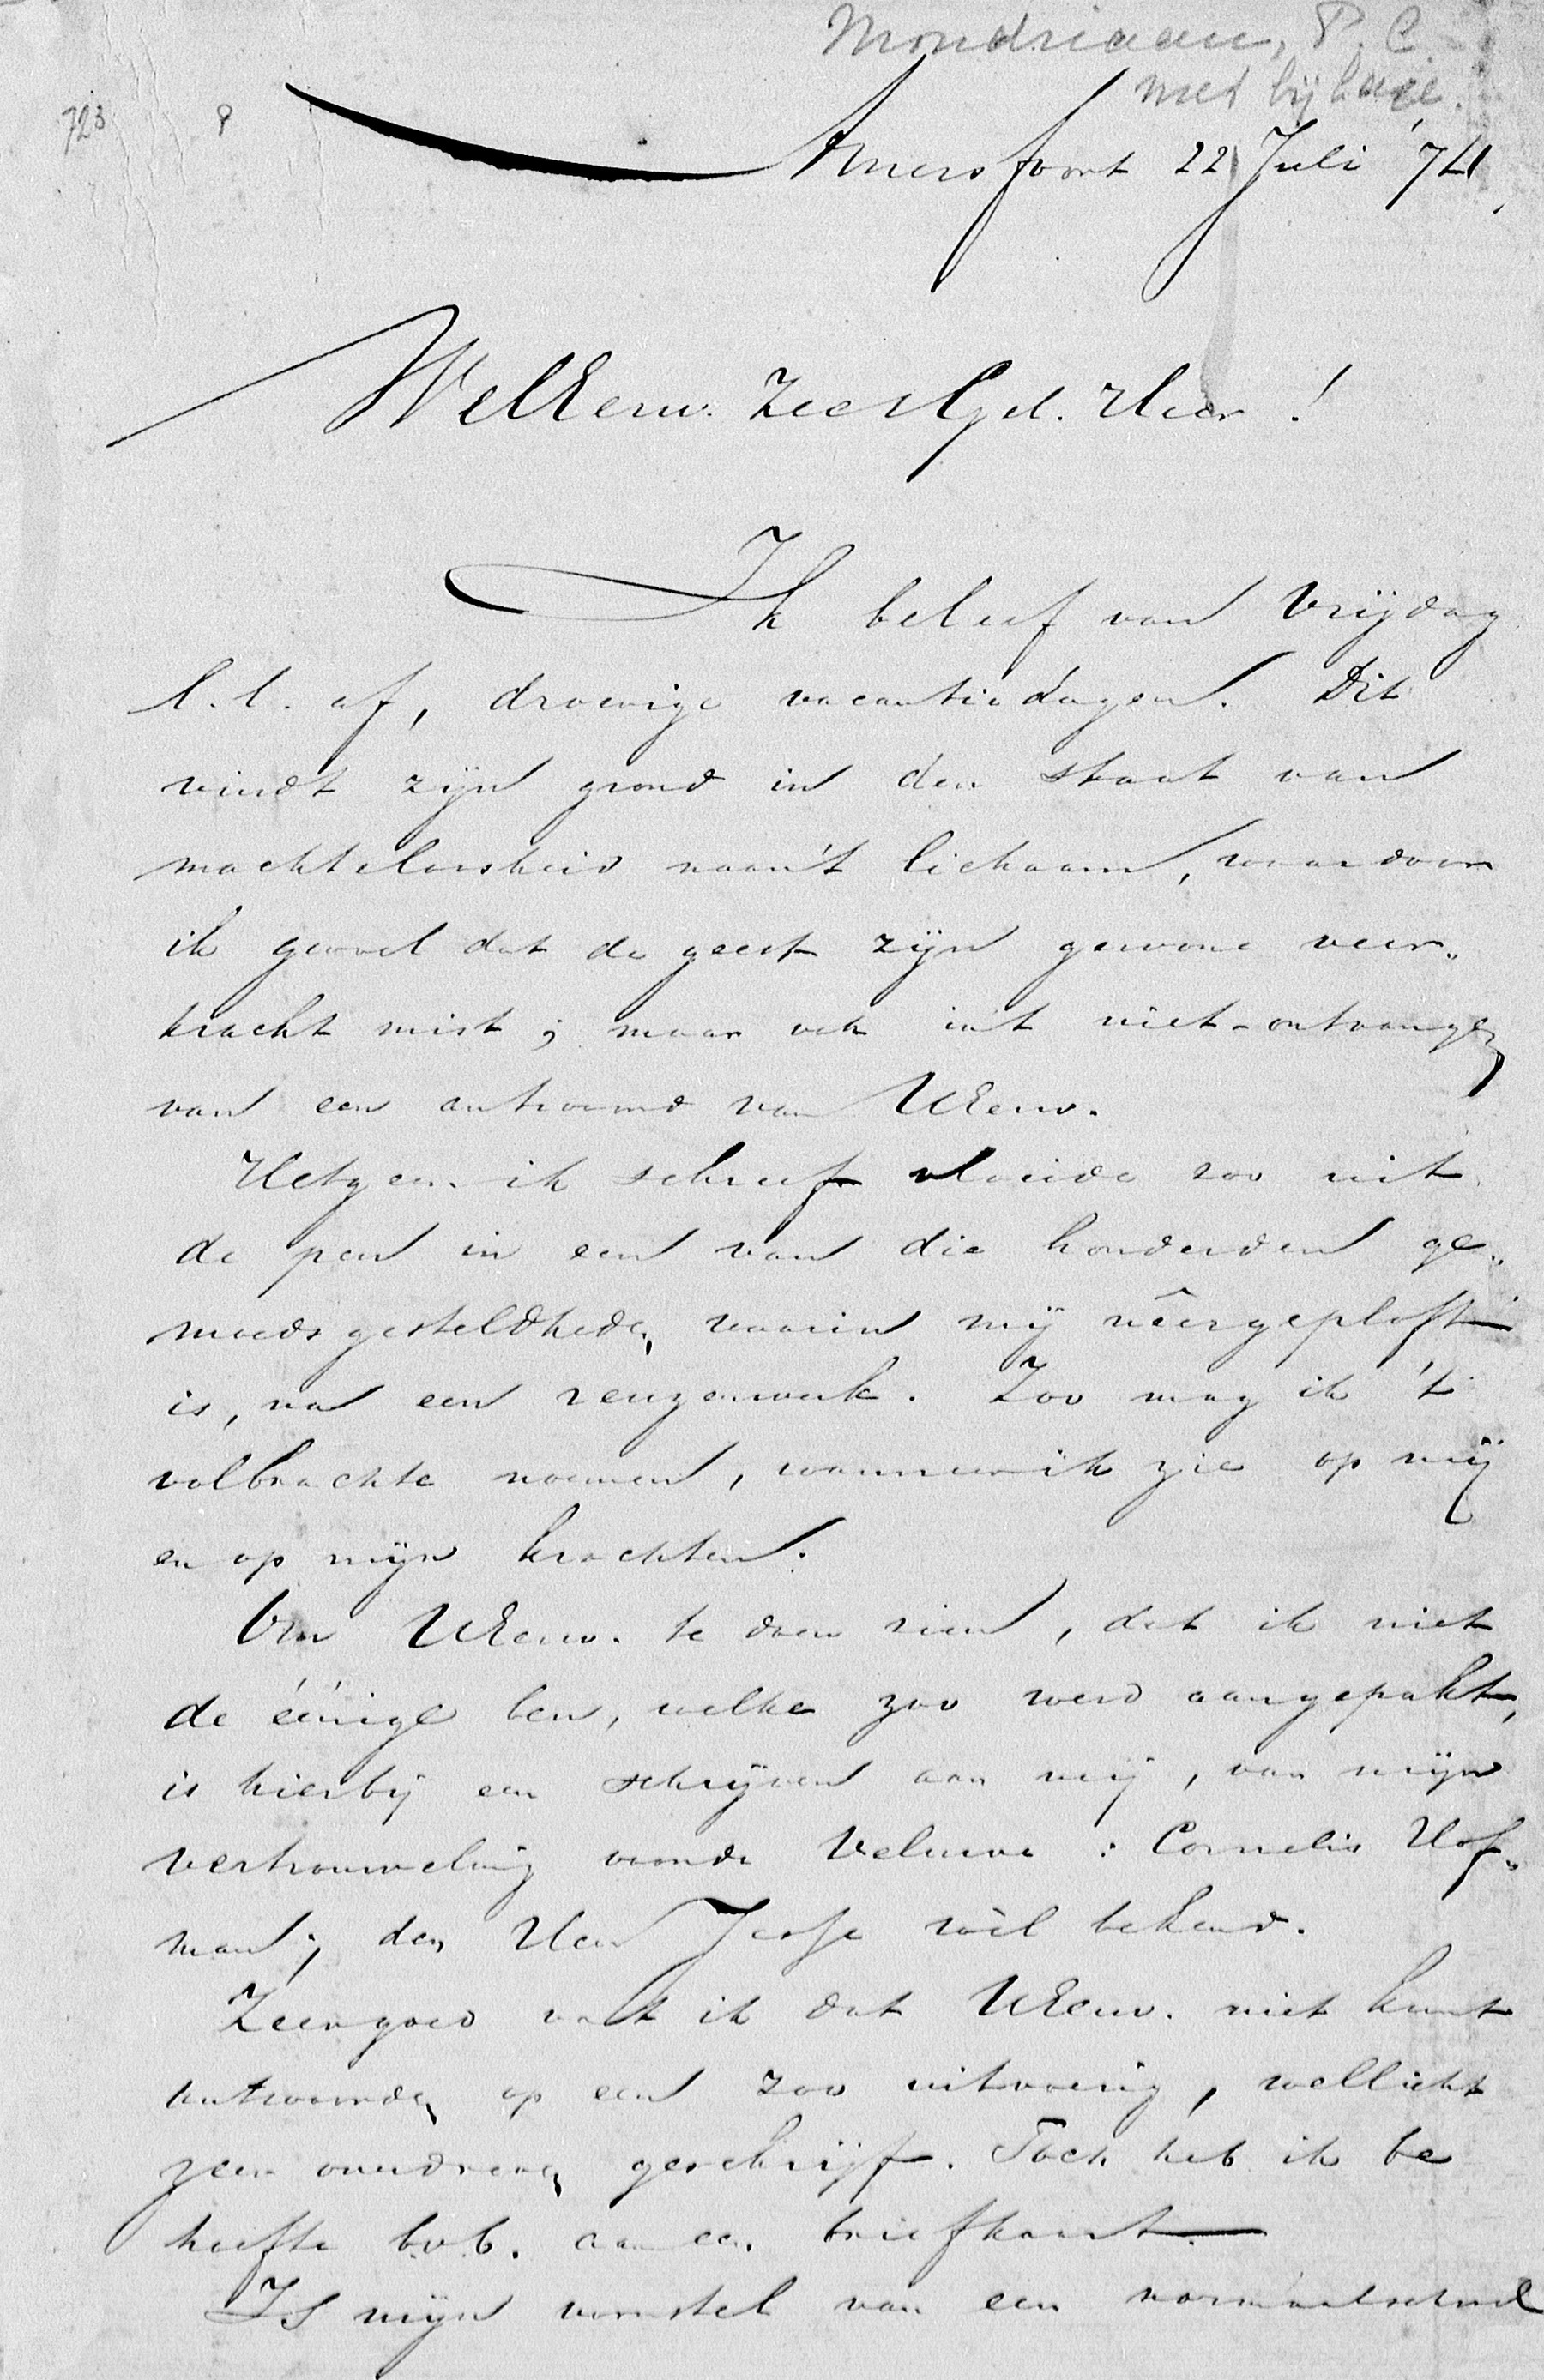 Mondriaan, P. C.
met bijlage.
723
Amersfoort 22 Juli '74
WelEerw. ZeerGel. Heer!
Ik beleef van Vrijdag
l.l. af, droevige vacantiedagen. Dit
vindt zijn grond in den staat van
machteloosheid naar 't lichaam, waardoor
ik gevoel dat de geest zijn gewone veer-
kracht mist; maar ook in 't niet-ontvangen
van een antwoord van UEerw.
Hetgeen ik schreef vloeide zoo uit
de pen in een van die honderden ge-
moedsgesteldheden, waarin mij nêergeploft
is, na een reuzenwerk. Zoo mag ik 't
volbrachte noemen, wanneer ik zie op mij
en op mijn krachten.
Om UEerw. te doen zien, dat ik niet
de éénige ben, welke zoo werd aangepakt,
is hierbij een schrijven aan mij, van mijn
vertrouweling van de Veluwe: Cornelis Hof-
man; den Heer Jesse wèl bekend.
Zeer goed vat ik dat UEerw. niet kunt
antwoorden op een zoo uitvoerig, wellicht
zeer geschrijf. Toch heb ik be
hoefte b.v.b. aan een briefkaart.
Is mijn voorstel van een normaalschool